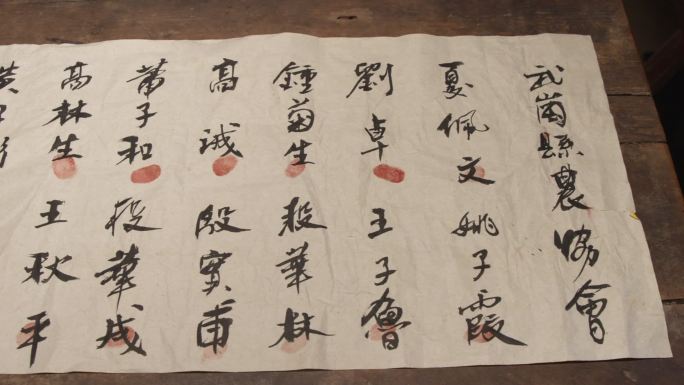 武崗縣農協會
夏佩文 姚子霞
劉卓 王子魯
鍾菊生 段華林
高誠 殷寶甫
蕭子和 段華成
高林生 王秋平